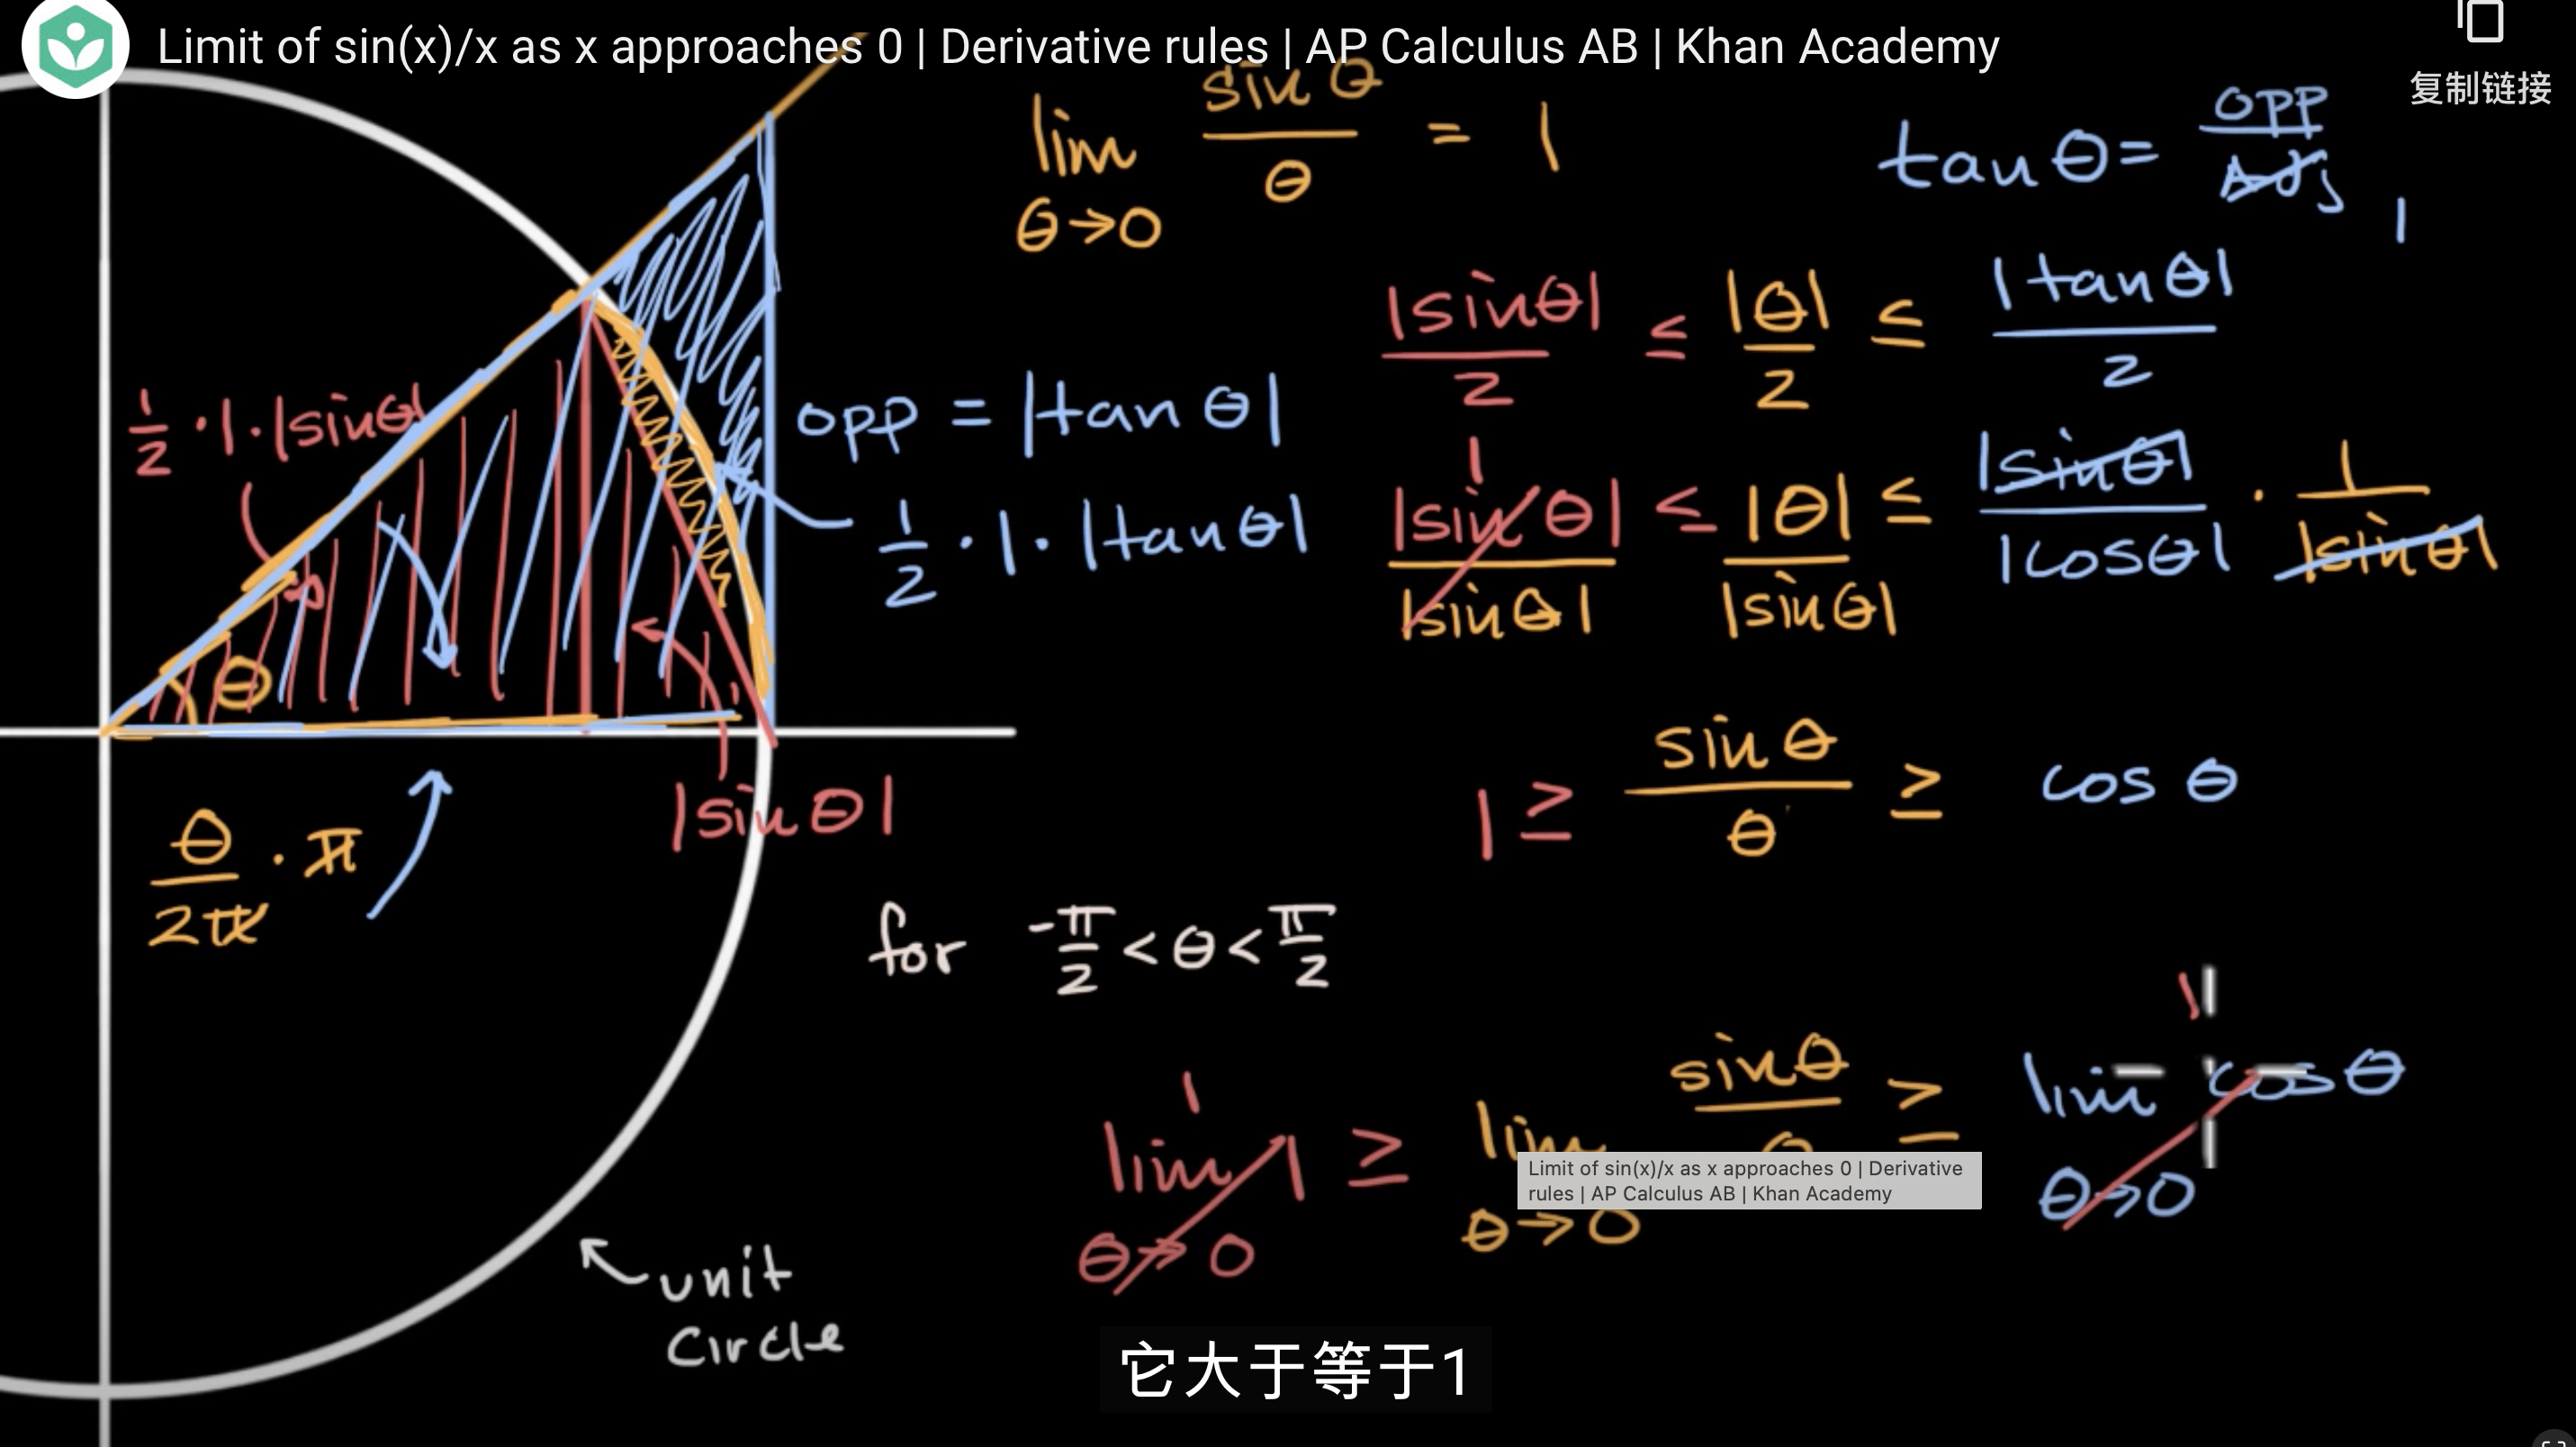 Limit of sin(x)/x as x approaches 0 | Derivative rules | AP Calculus AB | Khan Academy
复制链接
lim θ→0 sin θ / θ = 1
tan θ = opp / ADJ 1
|sinθ| / 2 ≤ |θ| / 2 ≤ |tan θ| / 2
1/2 · 1 · |sinθ|
opp = |tan θ|
1/2 · 1 · |tan θ|
1
|sin θ| / |sin θ| ≤ |θ| / |sin θ| ≤ |sin θ| / |cos θ| · 1 / |sin θ|
θ
1 ≥ sin θ / θ ≥ cos θ
|sin θ|
θ / 2π · π
for -π/2 < θ < π/2
1
1
lim θ→0 1 ≥ lim θ→0 sin θ ≥ lim θ→0 cos θ
Limit of sin(x)/x as x approaches 0 | Derivative
rules | AP Calculus AB | Khan Academy
unit
circle
它大于等于1